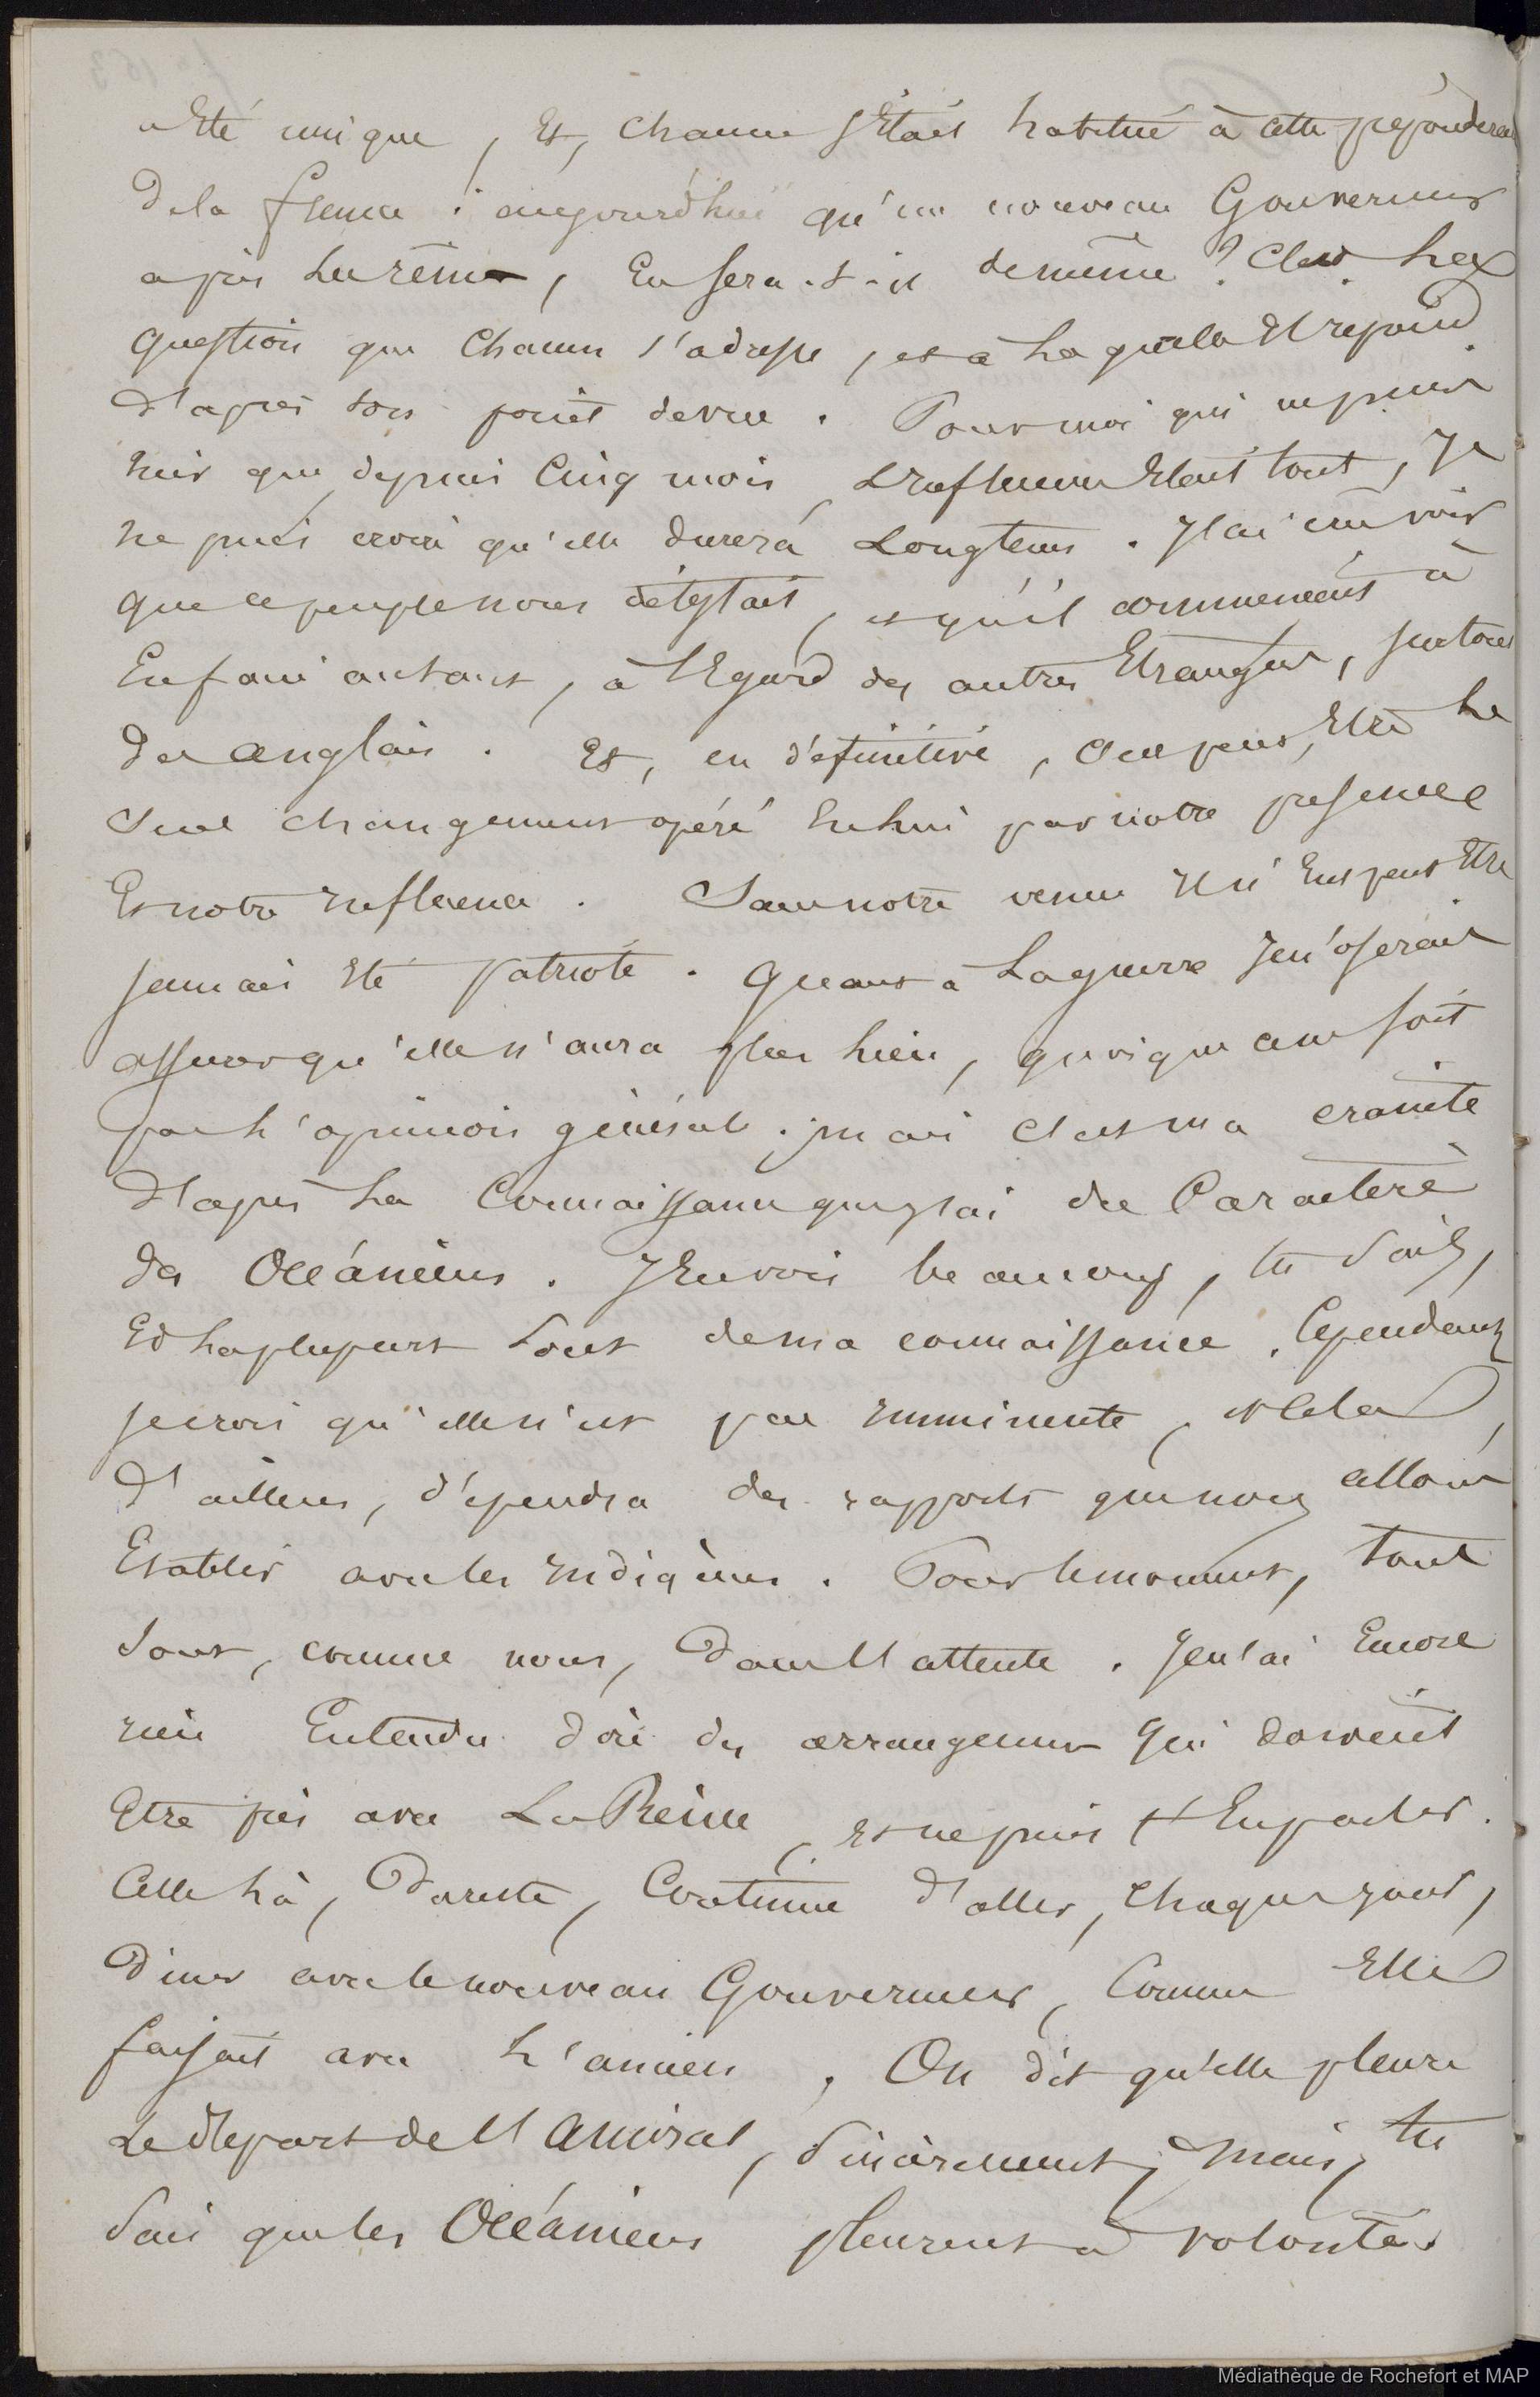 a Eté unique, Et, chacun s'Etait habitué à cette préponderen
de la france ; aujourdhui qu'un nouveau Gouverneur
a pris les rênes, En sera-t-il de même ? C'est la
question que chacun s'adresse, et à la quelle Il repond
d'apres son point de vue. Pour moi qui ne peut
nier que, depuis Cinq mois, L'Influence Etait tout, Je
ne puis croire qu'elle durera Longtems. J'ai cru voir
que ce peuple nous détestait, et qu'il commencait à
En faire autant, à l'Egard des autres Etrangers, surtout
des anglais. Et, en définitive, c'est peut, Etre le
seul changement opéré En lui par notre présence
Et notre Influence. Sans notre venue Il n'Eut peut Etre
jamais Eté patriote. Quant à La guerre Je n'oserais
assurer qu'elle n'aura plus lieu, quoique ce ne soit
pas l'opinion générale. mais c'est ma crainte
d'apres La Connaissance que J'ai du Caractère
des Océaniens. J'En vois beaucoup, tu sais,
Et La plupart sont de ma connaissance. Cependant
je crois qu'elle n'est pas Imminente, et Cela,
d'ailleurs, dépendra des rapports que nous allons
Etablir avec les Indigènes. Pour le moment, tous
sont, comme nous, Dans l'attente. Je n'ai Encore
rien Entendu dire des arrangemens qui doivent
Etre pris avec La Reine, et ne puis t'En parler.
Celle là, Du reste, Continue d'aller, chaque jour,
diner avec le nouveau Gouverneur, Comme Elle
faisait avec L'ancien. On dit qu'elle pleure
Le départ de l'amiral, sincèrement, mais, tu
sais que les Océaniens pleurent à volonté.
Médiathèque de Rochefort et MAP